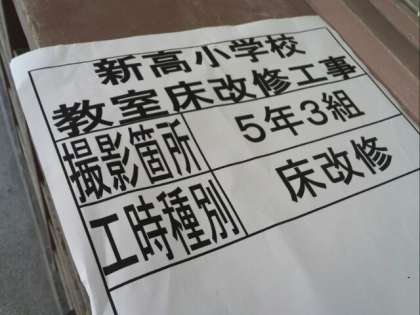 新高小学校
教室床改修工事
撮影箇所 5年3組
工時種別 床改修